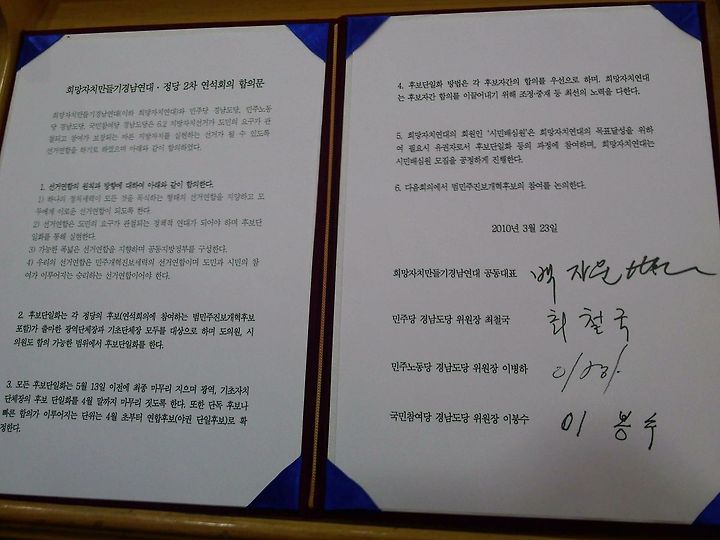 희망자치만들기경남연대 · 정당 2차 연석회의 합의문
희망자치만들기경남연대(이하 희망자치연대)와 민주당 경남도당, 민주노동
당 경남도당, 국민참여당 경남도당은 6.2 지방자치선거가 도민의 요구가 관
철되고 참여가 보장되는 바른 지방자치를 실현하는 선거가 될 수 있도록
선거연합을 하기로 하였으며 아래와 같이 합의하였다.
1. 선거연합의 원칙과 방향에 대하여 아래와 같이 합의한다.
1) 하나의 정치세력이 모든 것을 독식하는 형태의 선거연합을 지양하고 모
두에게 이로운 선거연합이 되도록 한다.
2) 선거연합은 도민의 요구가 관철되는 정책적 연대가 되어야 하며 후보단
일화를 통해 실현한다.
3) 가능한 폭넓은 선거연합을 지향하며 공동지방정부를 구성한다.
4) 우리의 선거연합은 민주개혁진보세력의 선거연합이며 도민과 시민의 참
여가 이루어지는 승리하는 선거연합이어야 한다.
2. 후보단일화는 각 정당의 후보(연석회의에 참여하는 범민주진보개혁후보
포함)가 출마한 광역단체장과 기초단체장 모두를 대상으로 하며 도의원, 시
의원도 합의 가능한 범위에서 후보단일화를 한다.
3. 모든 후보단일화는 5월 13일 이전에 최종 마무리 지으며 광역, 기초자치
단체장의 후보 단일화를 4월 말까지 마무리 짓도록 한다. 또한 단독 후보나
빠른 합의가 이루어지는 단위는 4월 초부터 연합후보(야권 단일후보)로 확
정한다.
4. 후보단일화 방법은 각 후보자간의 합의를 우선으로 하며, 희망자치연대
는 후보자간 합의를 이끌어내기 위해 조정·중재 등 최선의 노력을 다한다.
5. 희망자치연대의 회원인 '시민배심원'은 희망자치연대의 목표달성을 위하
여 필요시 유권자로서 후보단일화 등의 과정에 참여하며, 희망자치연대는
시민배심원 모집을 공정하게 진행한다.
6. 다음회의에서 범민주진보개혁후보의 참여를 논의한다.
2010년 3월 23일
희망자치만들기경남연대 공동대표
민주당 경남도당 위원장 최철국 최철국
민주노동당 경남도당 위원장 이병하
국민참여당 경남도당 위원장 이봉수 이봉수